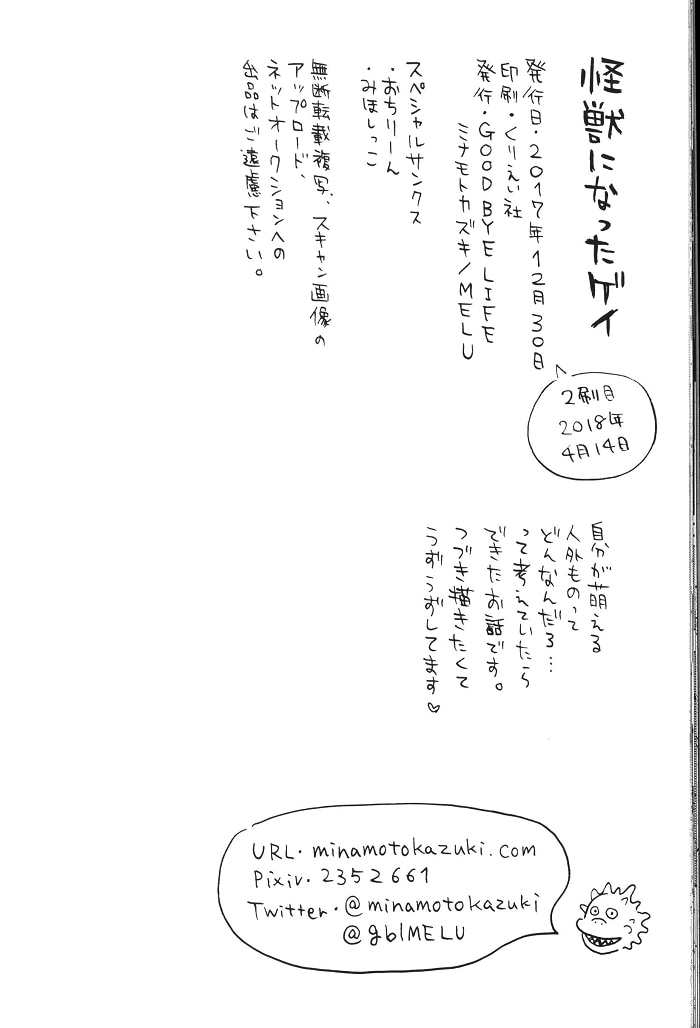 怪獣になったゲイ
発行日・2017年12月30日
印刷・くりえい社
発行・GOOD BYE LIFE
ミナモトカズキ/MELU
2刷目
2018年
4月14日
スペシャルサンクス
・おちりーん
・みほしっこ
無断転載複写、スキャン画像の
アップロード、
ネットオークションへの
出品はご遠慮下さい。
自分が萌える
人外ものって
どんなんだろ…
って考えていたら
できたお話です。
つづき描きたくて
うずうずしてます♡
URL・minamotokazuki.com
Pixiv・2352661
Twitter・@minamotokazuki
@gblMELU